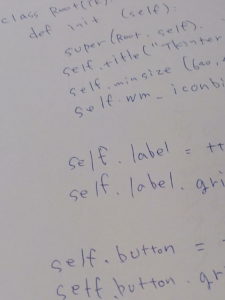 class Root(Tk):
def init (self):
super(Root, self).
self.title("Tkinter
self.minsize (600,
self.wm_iconbi
self.label = tt
self.label.gri
self.button =
self.button.gr